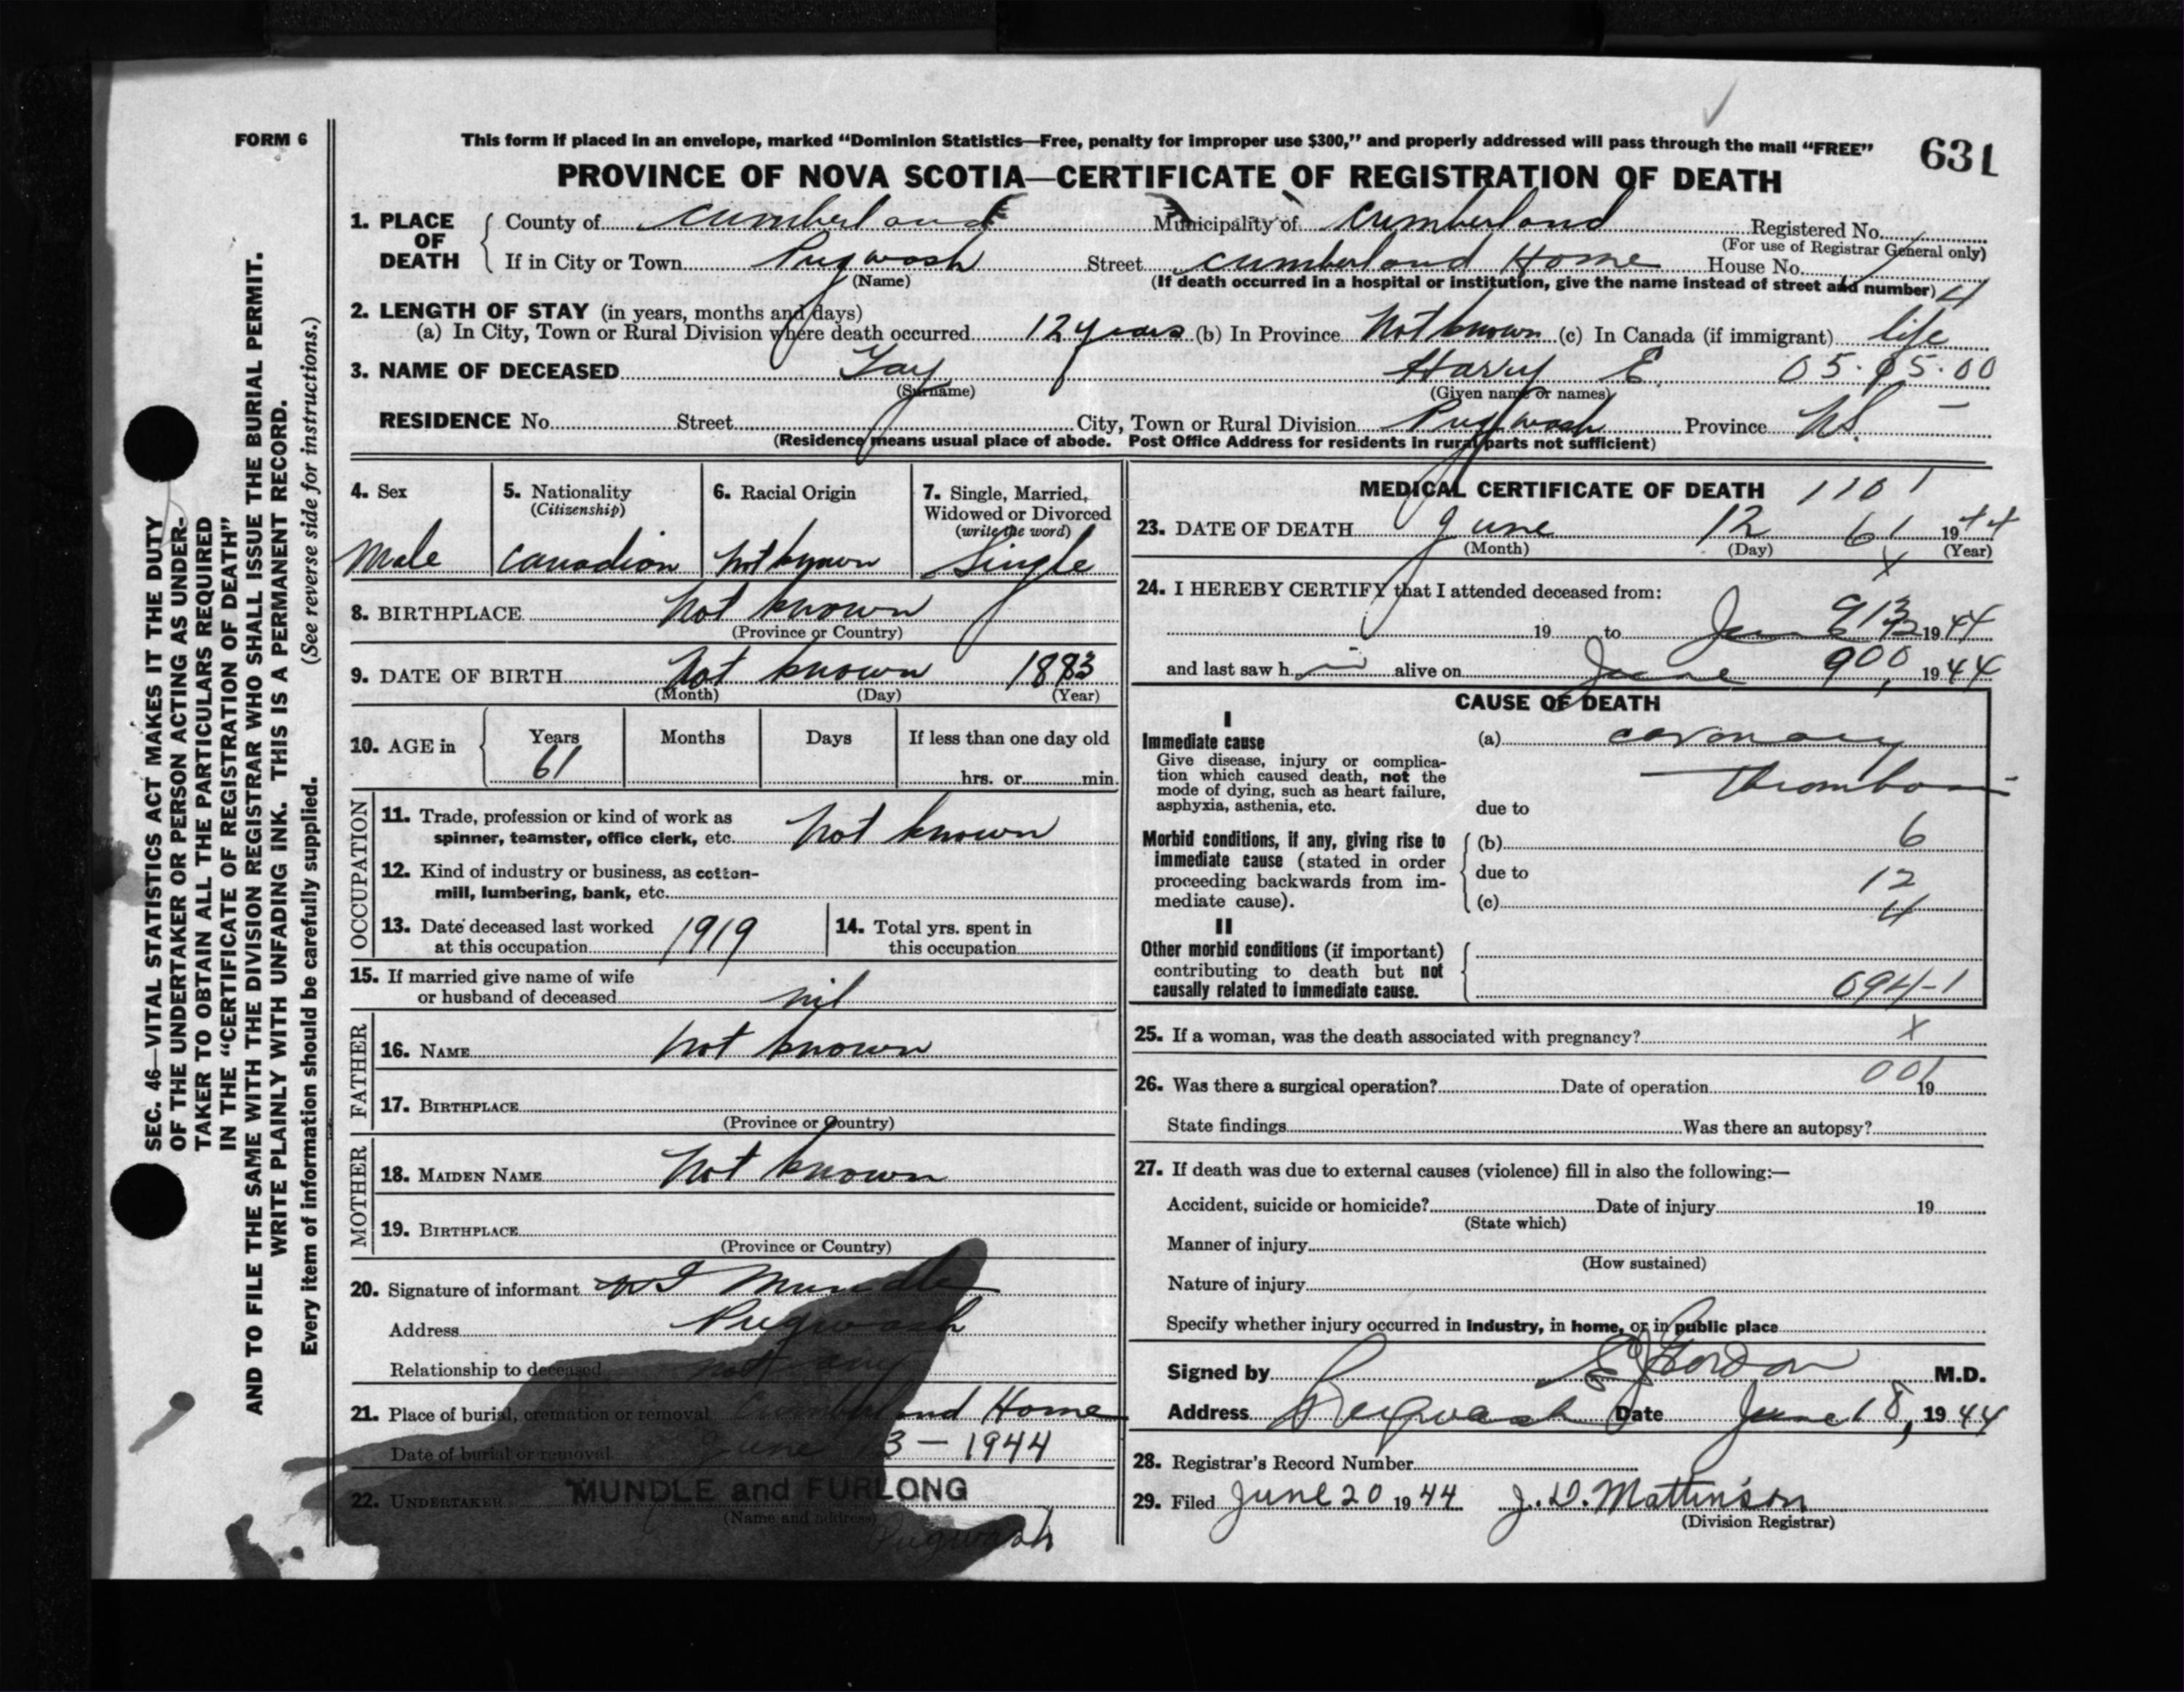 FORM 6
This form if placed in an envelope, marked “Dominion Statistics—Free, penalty for improper use $300,” and properly addressed will pass through the mail “FREE”
631
PROVINCE OF NOVA SCOTIA—CERTIFICATE OF REGISTRATION OF DEATH
1. PLACE OF DEATH
County of Cumberland Municipality of Cumberland Registered No.
(For use of Registrar General only)
If in City or Town Pugwash Street Cumberland Home House No.
(Name) (If death occurred in a hospital or institution, give the name instead of street and number) 4
2. LENGTH OF STAY (in years, months and days)
(a) In City, Town or Rural Division where death occurred 12 years (b) In Province Not known (c) In Canada (if immigrant) life
3. NAME OF DECEASED Harry E. 05.05.00
(Surname) (Given name or names)
RESIDENCE No. Street City, Town or Rural Division Pugwash Province N.S. —
(Residence means usual place of abode. Post Office Address for residents in rural parts not sufficient)
4. Sex
Male
5. Nationality
(Citizenship)
Canadian
6. Racial Origin
Not known
7. Single, Married, Widowed or Divorced
(write the word)
Single
8. BIRTHPLACE Not known
(Province or Country)
9. DATE OF BIRTH Not known 1883
(Month) (Day) (Year)
10. AGE in Years Months Days If less than one day old
61 hrs. or min.
OCCUPATION
11. Trade, profession or kind of work as
spinner, teamster, office clerk, etc. Not known
12. Kind of industry or business, as cotton-
mill, lumbering, bank, etc.
13. Date deceased last worked
at this occupation 1919
14. Total yrs. spent in
this occupation
15. If married give name of wife
or husband of deceased nil
FATHER
16. NAME Not known
17. BIRTHPLACE
(Province or Country)
MOTHER
18. MAIDEN NAME Not known
19. BIRTHPLACE
(Province or Country)
20. Signature of informant Mundle
Address Pugwash
Relationship to deceased not any
21. Place of burial, cremation or removal Cumberland Home
Date of burial or removal June 3 — 1944
22. UNDERTAKER MUNDLE and FURLONG
(Name and address)
Pugwash
MEDICAL CERTIFICATE OF DEATH 1101
23. DATE OF DEATH June 12 61 1944
(Month) (Day) (Year)
x
24. I HEREBY CERTIFY that I attended deceased from:
19 to June 1944
and last saw h im alive on June 900, 1944
CAUSE OF DEATH
I
Immediate cause (a) coronary
Give disease, injury or complica-
tion which caused death, not the
mode of dying, such as heart failure,
asphyxia, asthenia, etc. due to
Thrombosis
Morbid conditions, if any, giving rise to
immediate cause (stated in order
proceeding backwards from im-
mediate cause).
(b) 6
due to 12
(c) 4
II
Other morbid conditions (if important)
contributing to death but not
causally related to immediate cause.
094-1
25. If a woman, was the death associated with pregnancy? x
26. Was there a surgical operation? Date of operation 001 19
State findings Was there an autopsy?
27. If death was due to external causes (violence) fill in also the following:—
Accident, suicide or homicide? Date of injury 19
(State which)
Manner of injury
(How sustained)
Nature of injury
Specify whether injury occurred in industry, in home, or in public place
Signed by Gordon M.D.
Address Pugwash Date June 18, 1944
28. Registrar's Record Number
29. Filed June 20 1944 J. D. Mattinson
(Division Registrar)
SEC. 46—VITAL STATISTICS ACT MAKES IT THE DUTY
OF THE UNDERTAKER OR PERSON ACTING AS UNDER-
TAKER TO OBTAIN ALL THE PARTICULARS REQUIRED
IN THE “CERTIFICATE OF REGISTRATION OF DEATH”
AND TO FILE THE SAME WITH THE DIVISION REGISTRAR WHO SHALL ISSUE THE BURIAL PERMIT.
WRITE PLAINLY WITH UNFADING INK. THIS IS A PERMANENT RECORD.
Every item of information should be carefully supplied. (See reverse side for instructions.)